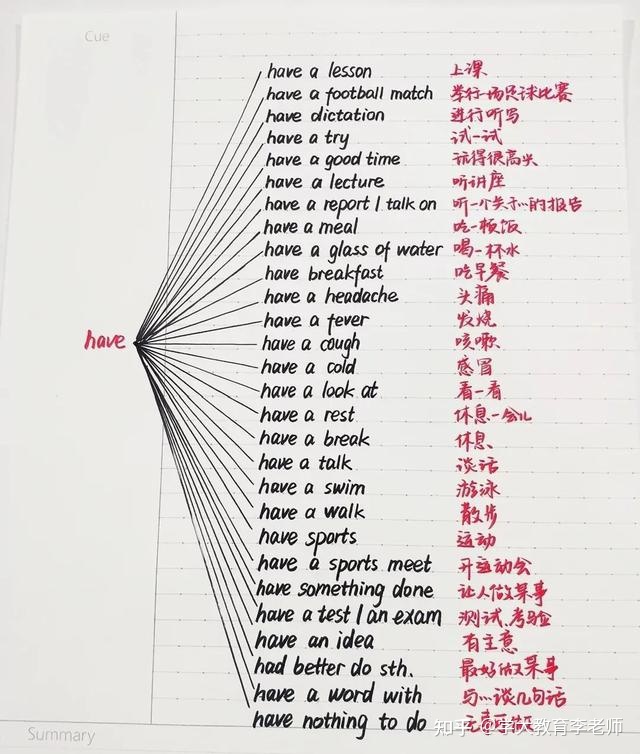 Cue
have a lesson 上课
have a football match 举行一场足球比赛
have dictation 进行听写
have a try 试一试
have a good time 玩得很高兴
have a lecture 听讲座
have a report / talk on 听一个关于…的报告
have a meal 吃一顿饭
have a glass of water 喝一杯水
have breakfast 吃早餐
have a headache 头痛
have a fever 发烧
have
have a cough 咳嗽
have a cold 感冒
have a look at 看一看
have a rest 休息一会儿
have a break 休息
have a talk 谈话
have a swim 游泳
have a walk 散步
have sports 运动
have a sports meet 开运动会
have something done 让人做某事
have a test / an exam 测试、考验
have an idea 有主意
had better do sth. 最好做某事
have a word with 与…谈几句话
have nothing to do
知乎 @宇大教育李老师
Summary